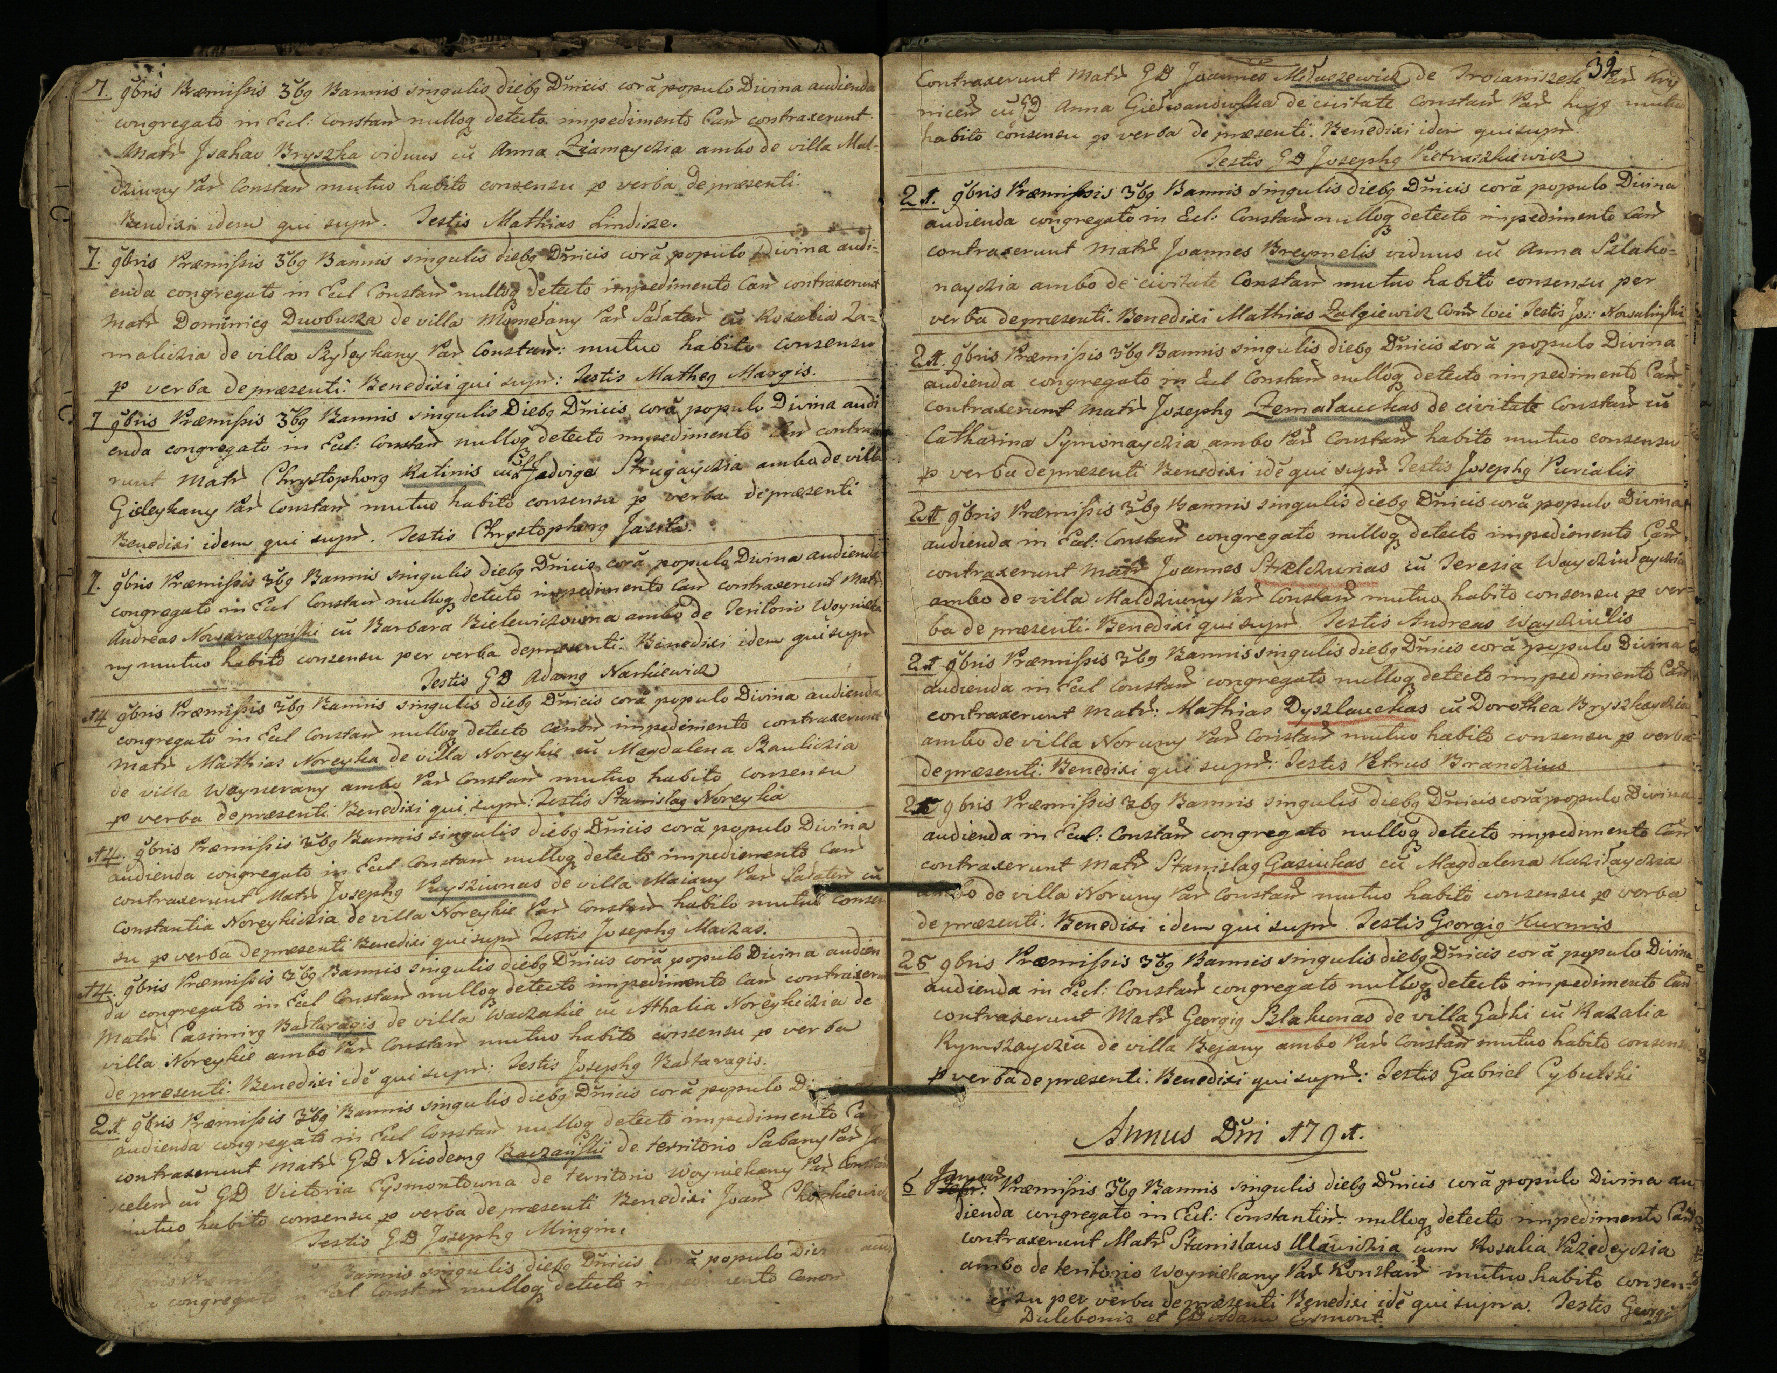 7. 9bris Præmissis 3bg Bannis singulis diebg Dnicis corã populo Divina audienda
congregato in Eccl: Constan nulloq detecto impedimento Can contraxerunt
Matr Isahac Bryszka viduus cũ Anna Ziamaydzia ambo de villa Mal-
dziuny Par Constan mutuo habito consensu p verba de præsenti.
Benedixi idem qui supr. Testis Mathias Lindisze.
7. 9bris Præmissis 3bg Bannis singulis diebg Dnicis corã populo Divina audi-
enda congregato in Eccl Constan nulloq detecto impedimento Can contraxerunt
Matr Dominicg Duobuzka de villa Par Salaten cũ Rozalia Za-
maliczia de villa Szyleykany Par Constan: mutuo habito consensu
p verba de præsenti: Benedixi qui supr: Testis Matheg Margis.
7 9bris Præmissis 3bg Bannis singulis Diebg Dnicis corã populo Divina audi
enda congregato in Eccl: Constan nulloq detecto impedimento Can contraxe
runt Matr Chrystophorg Ratinis cũ Hedvige Strugaydzia ambo de villa
Gieleykany Par Constan mutuo habito consensu p verba de præsenti
Benedixi idem qui supr. Testis Chrystophorg Jasita.
7. 9bris Præmissis 3bg Bannis singulis diebg Dnicis corã populo Divina audienda
congregato in Eccl Constan nulloq detecto impedimento Can contraxerunt Matr
Andreas cũ Barbara Bielewiczowna ambo de Teritorio Woynieka
ny mutuo habito consensu per verba de præsenti. Benedixi idem qui supr
Testis GD Adamg Narkiewicz
14 9bris Præmissis 3bg Bannis singulis diebg Dnicis corã populo Divina audienda
congregato in Eccl Constan nulloq detecto Canon impedimento contraxerunt
Matr Mathias Noreyka de villa Noreykie cũ Magdalena Bauliczia
de villa Woynerany ambo Par Constan mutuo habito consensu
p verba de præsenti Benedixi qui supr: Testis Stanislag Noreyka
14. 9bris Præmissis 3bg Bannis singulis diebg Dnicis corã populo Divina
audienda congregato in Eccl Constan nulloq detecto impedimento Can
contraxerunt Matr Josephg Puysziunas de villa Maiany Par Salaten cũ
Constantia Noreykiczia de villa Noreykie Par Constan habito mutuo consen
su p verba de præsenti Benedixi qui supr Testis Josephg Maczas.
14. 9bris Præmissis 3bg Bannis singulis diebg Dnicis corã populo Divina audien
da congregato in Eccl Constan nulloq detecto impedimento Can contraxeru
Matr Casimirg Baltaragis de villa Waczakie cũ Athalia Noreykiczia de
villa Noreykie ambo Par Constan mutuo habito consensu p verba
de præsenti: Benedixi idẽ qui supr: Testis Josephg Baltaragis.
21 9bris Præmissis 3bg Bannis singulis diebg Dnicis corã populo Di
audienda congregato in Eccl Constan nulloq detecto impedimento Ca
contraxerunt Matr GD Nicodemg Baczański de territorio Sabany Par
scelen cũ GD Victoria Eysmontowna de territorio Woyniekany Par Constan
mutuo habito consensu p verba de præsenti Benedixi Joan
Testis GD Josephg Mingin.
Bannis singulis diebg Dnicis corã populo Divi
da congregato Eccl Constan nulloq detecto impedimento Canon
39
Contraxerunt Matr GD Joannes Miluszewicz de Troianiszek Par Kry
nicen cũ GD Anna Giedwandowska de civitate Constan Par hujg mutuo
habito consensu p verba de præsenti. Benedixi idem qui supr.
Testis GD Josephg Pietraszkiewicz
21. 9bris Præmissis 3bg Bannis singulis diebg Dnicis corã populo Divina
audienda congregato in Eccl: Constan nulloq detecto impedimento Can
contraxerunt Matr Joannes Breymelis viduus cũ Anna Szlako-
naydzia ambo de civitate Constan mutuo habito consensu per
verba de præsenti. Benedixi Mathias Zulgiewicz Com loci Testis Jos: Nowaliński
21. 9bris Præmissis 3bg Bannis singulis diebg Dnicis corã populo Divina
audienda congregato in Eccl Constan nulloq detecto impedimento Can
contraxerunt Matr Josephg Zemalauckas de civitate Constan cũ
Catharina Symonaydzia ambo Par Constan habito mutuo consensu
p verba de præsenti Benedixi idẽ qui supr Testis Josephg Purialis
21 9bris Præmissis 3bg Bannis singulis diebg Dnicis corã populo Divina
audienda in Eccl: Constan congregato nulloq detecto impedimento Can
contraxerunt Matr Joannes Strelcziunas cũ Teresia Waydziulaydzia
ambo de villa Maldziuny Par Constan mutuo habito consensu p ver-
ba de præsenti. Benedixi qui supr Testis Andreas Waydziulis
21 9bris Præmissis 3bg Bannis singulis diebg Dnicis corã populo Divina
audienda in Eccl Constan congregato nulloq detecto impedimento Can
contraxerunt Matr: Mathias Dyszlauckas cũ Dorothea Bryszkaydzia
ambo de villa Noruny Par Constan mutuo habito consensu p verba
de præsenti. Benedixi qui supr: Testis Petrus Boranczius
25 9bris Præmissis 3bg Bannis singulis diebg Dnicis corã populo Divina
audienda in Eccl: Constan congregato nulloq detecto impedimento Can
contraxerunt Matr Stanislag Gasiukas cũ Magdalena Kazilaydzia
ambo de villa Noruny Par Constan mutuo habito consensu p verba
de præsenti. Benedixi idem qui supr Testis Georgig Kurmis
25 9bris Præmissis 3bg Bannis singulis diebg Dnicis corã populo Divina
audienda in Eccl: Constan congregato nulloq detecto impedimento Can
contraxerunt Matr Georgig Blakunas de villa Gaski cũ Rozalia
Rymszaydzia de villa Bejany ambo Par Constan mutuo habito consensu
p verba de præsenti. Benedixi qui supr: Testis Gabriel Cybulski
Annus Dñi 1791.
6 Januar Præmissis 3bg Bannis singulis diebg Dnicis corã populo Divina au
dienda congregato in Eccl: Constantin. nulloq detecto impedimento Can
contraxerunt Matr Stanislaus Ulawiczia cum Rosalia Pazedeydzia
ambo de teritorio Woyniekany Par Konstan mutuo habito consen-
su per verba de præsenti Benedixi idẽ qui supra. Testis Georgig
Dulebonis et GD Adam Eysmont.